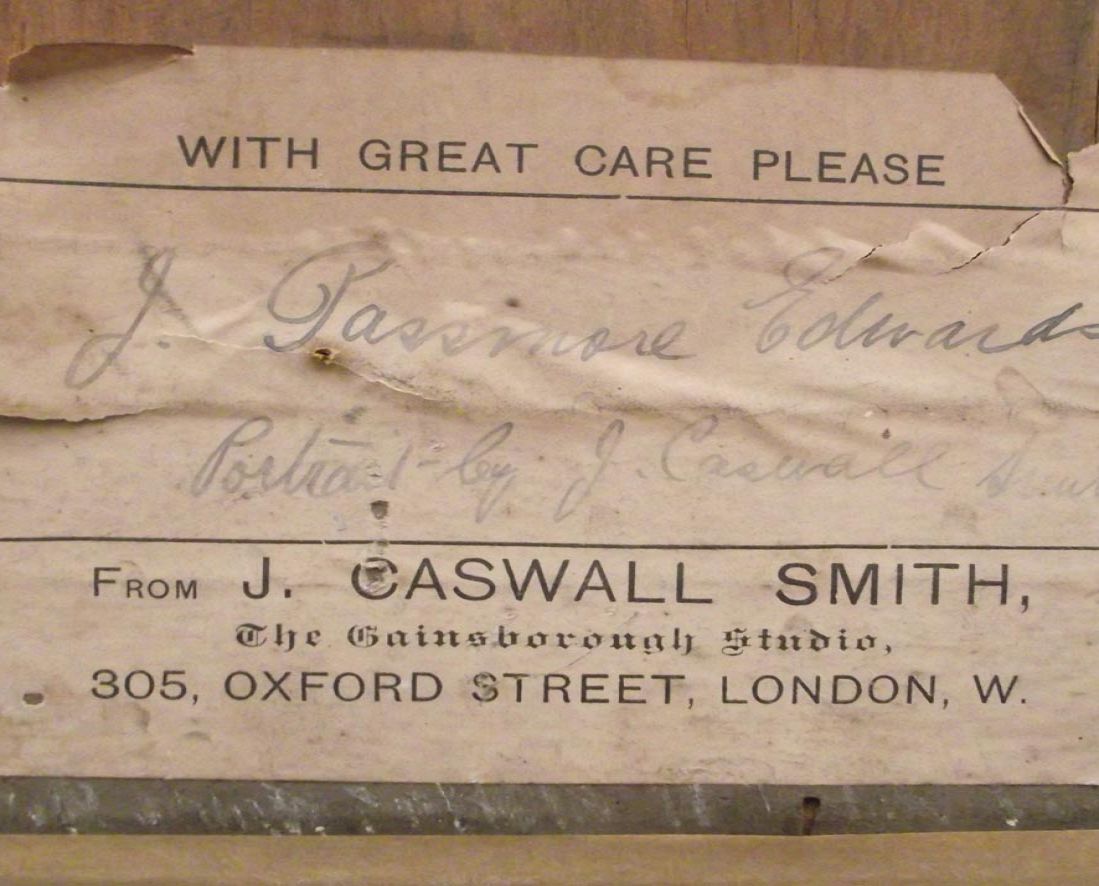 WITH GREAT CARE PLEASE
J. Passmore Edwards
Portrait by J. Caswall
FROM J. CASWALL SMITH,
The Gainsborough Studio,
305, OXFORD STREET, LONDON, W.